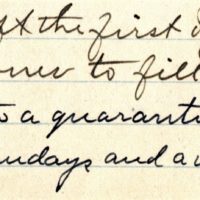 the first
to fill
to a quaranti
undays and a